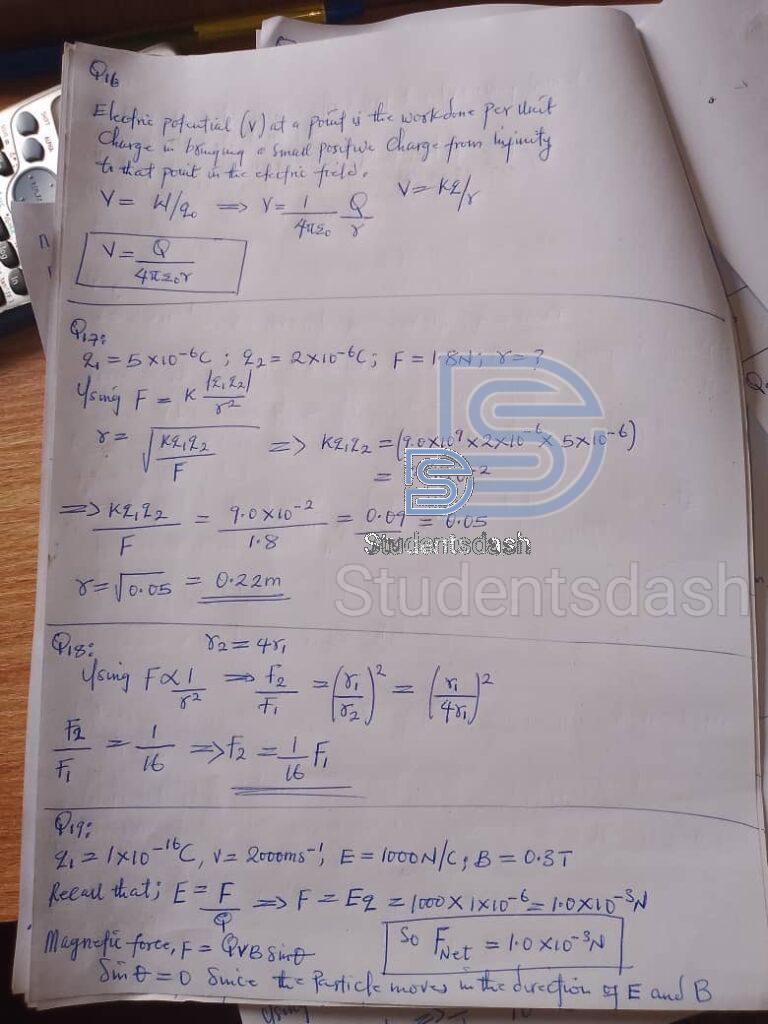 Q16
Electric potential (V) at a point is the workdone per unit
Charge in bringing a small positive charge from infinity
to that point in the electric field.
V = W/q₀ => V = 1/4πε₀ Q/r V = KQ/r
V = Q/4πε₀r
Q17:
q₁ = 5×10⁻⁶C ; q₂ = 2×10⁻⁶C ; F = 1.8N ; r = ?
Using F = K |q₁q₂|/r²
r = √(Kq₁q₂/F) => Kq₁q₂ = (9.0×10⁹ × 2×10⁻⁶ × 5×10⁻⁶)
=
=> Kq₁q₂/F = 9.0×10⁻²/1.8 = 0.09 = 0.05
Studentsdash
r = √0.05 = 0.22m
Studentsdash
Q18: r₂ = 4r₁
Using F ∝ 1/r² => f₂/F₁ = (r₁/r₂)² = (r₁/4r₁)²
F₂/F₁ = 1/16 => f₂ = 1/16 F₁
Q19:
q₁ = 1×10⁻¹⁶C, V = 2000ms⁻¹, E = 1000N/C ; B = 0.3T
Recall that; E = F/Q => F = Eq = 1000 × 1×10⁻⁶ = 1.0×10⁻³N
Magnetic force, F = QVB Sinθ So F_Net = 1.0×10⁻³N
Sinθ = 0 Since the Particle moves in the direction of E and B